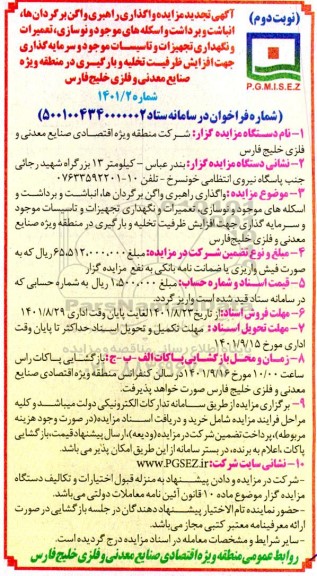 (نوبت دوم)
P.G.M.I.S.E.Z
آگهی تجدید مزایده واگذاری راهبری واگن برگردان ها،
انباشت و برداشت و اسکله های موجود و نوسازی، تعمیرات
و نگهداری تجهیزات و تاسیسات موجود و سرمایه گذاری
جهت افزایش ظرفیت تخلیه و بارگیری در منطقه ویژه
صنایع معدنی و فلزی خلیج فارس
شماره ۱۴۰۱/۲
(شماره فراخوان در سامانه ستاد ۵۰۰۱۰۰۴۳۴۰۰۰۰۰۰۲)
۱- نام دستگاه مزایده گزار: شرکت منطقه ویژه اقتصادی صنایع معدنی و
فلزی خلیج فارس
۲- نشانی دستگاه مزایده گزار: بندرعباس - کیلومتر ۱۳ بزرگراه شهید رجائی
جنب پاسگاه نیروی انتظامی خونسرخ - تلفن ۱۰-۰۷۶۳۳۵۹۲۲۰۱
۳- موضوع مزایده: واگذاری راهبری واگن برگردان ها، انباشت و برداشت و
اسکله های موجود و نوسازی، تعمیرات و نگهداری تجهیزات و تاسیسات موجود
و سرمایه گذاری جهت افزایش ظرفیت تخلیه و بارگیری در منطقه ویژه صنایع
معدنی و فلزی خلیج فارس
۴- مبلغ و نوع تضمین شرکت در مزایده: مبلغ ۶۵،۵۱۲،۰۰۰،۰۰۰ ریال که به
صورت فیش واریزی یا ضمانت نامه بانکی به نفع مزایده گزار
۵- قیمت اسناد و شماره حساب: مبلغ ۱،۵۰۰،۰۰۰ ریال به شماره حسابی که
در سامانه ستاد قید شده است واریز گردد.
۶- مهلت فروش اسناد: از تاریخ ۱۴۰۱/۸/۲۳ لغایت پایان وقت اداری ۱۴۰۱/۸/۲۹
۷- مهلت تحویل اسناد: مهلت تکمیل و تحویل اسناد حداکثر تا پایان وقت
اداری مورخ ۱۴۰۱/۹/۱۵
۸- زمان و محل بازگشایی پاکات الف - ب - ج: بازگشایی پاکات راس
ساعت ۱۰/۰۰ مورخ ۱۴۰۱/۹/۱۶ در سالن کنفرانس منطقه ویژه اقتصادی صنایع
معدنی و فلزی خلیج فارس صورت خواهد پذیرفت.
۹- برگزاری مزایده از طریق سامانه تدارکات الکترونیکی دولت میباشد و کلیه
مراحل فرایند مزایده شامل خرید و دریافت اسناد مزایده (در صورت وجود هزینه
مربوطه)، پرداخت تضمین شرکت در مزایده (ودیعه)، ارسال پیشنهاد قیمت، بازگشایی
پاکات، اعلام به برنده، در بستر سامانه از این طریق امکان پذیر می باشد.
۱۰- نشانی سایت شرکت: www.PGSEZ.ir
- شرکت در مزایده و دادن پیشنهاد به منزله قبول اختیارات و تکالیف دستگاه
مزایده گزار موضوع ماده ۱۰ قانون آئین نامه معاملات دولتی می باشد.
- حضور نماینده تام الاختیار پیشنهاد دهندگان در جلسه بازگشایی در صورت
ارائه معرفینامه معتبر کتبی مجاز می باشد.
- سایر شرایط و مشخصات معامله در اسناد مزایده درج گردیده است.
روابط عمومی منطقه ویژه اقتصادی صنایع معدنی و فلزی خلیج فارس